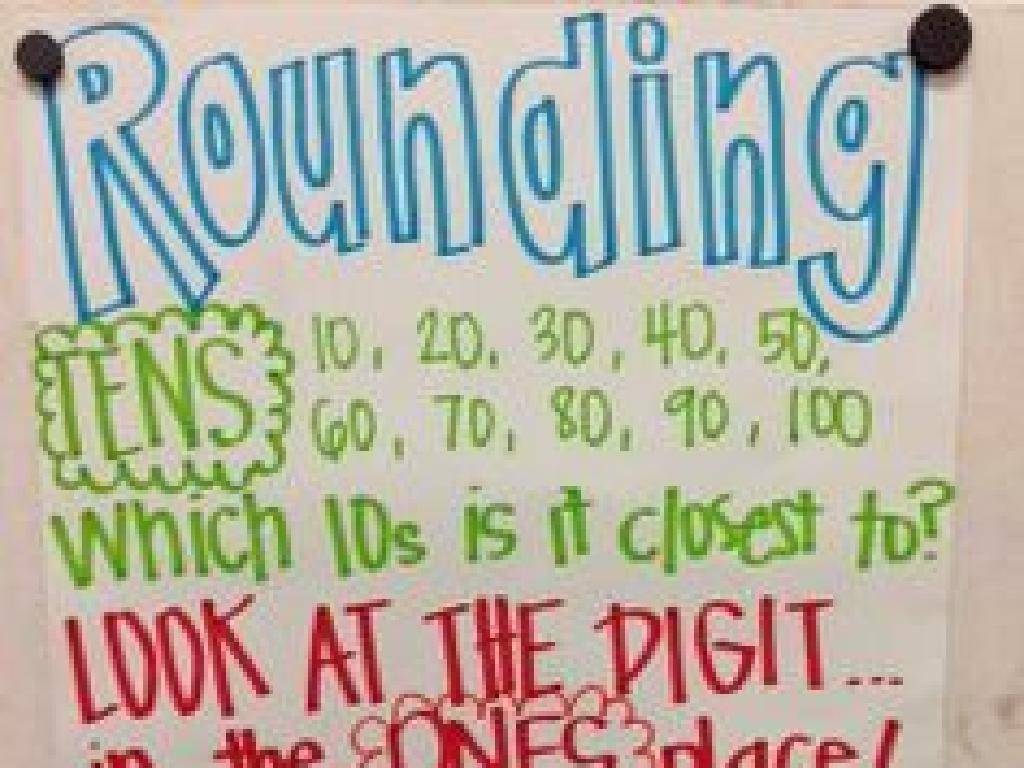 Rounding
TENS 10, 20, 30, 40, 50,
60, 70, 80, 90, 100
Which 10s is it closest to?
LOOK AT THE DIGIT...
in the ONES place!